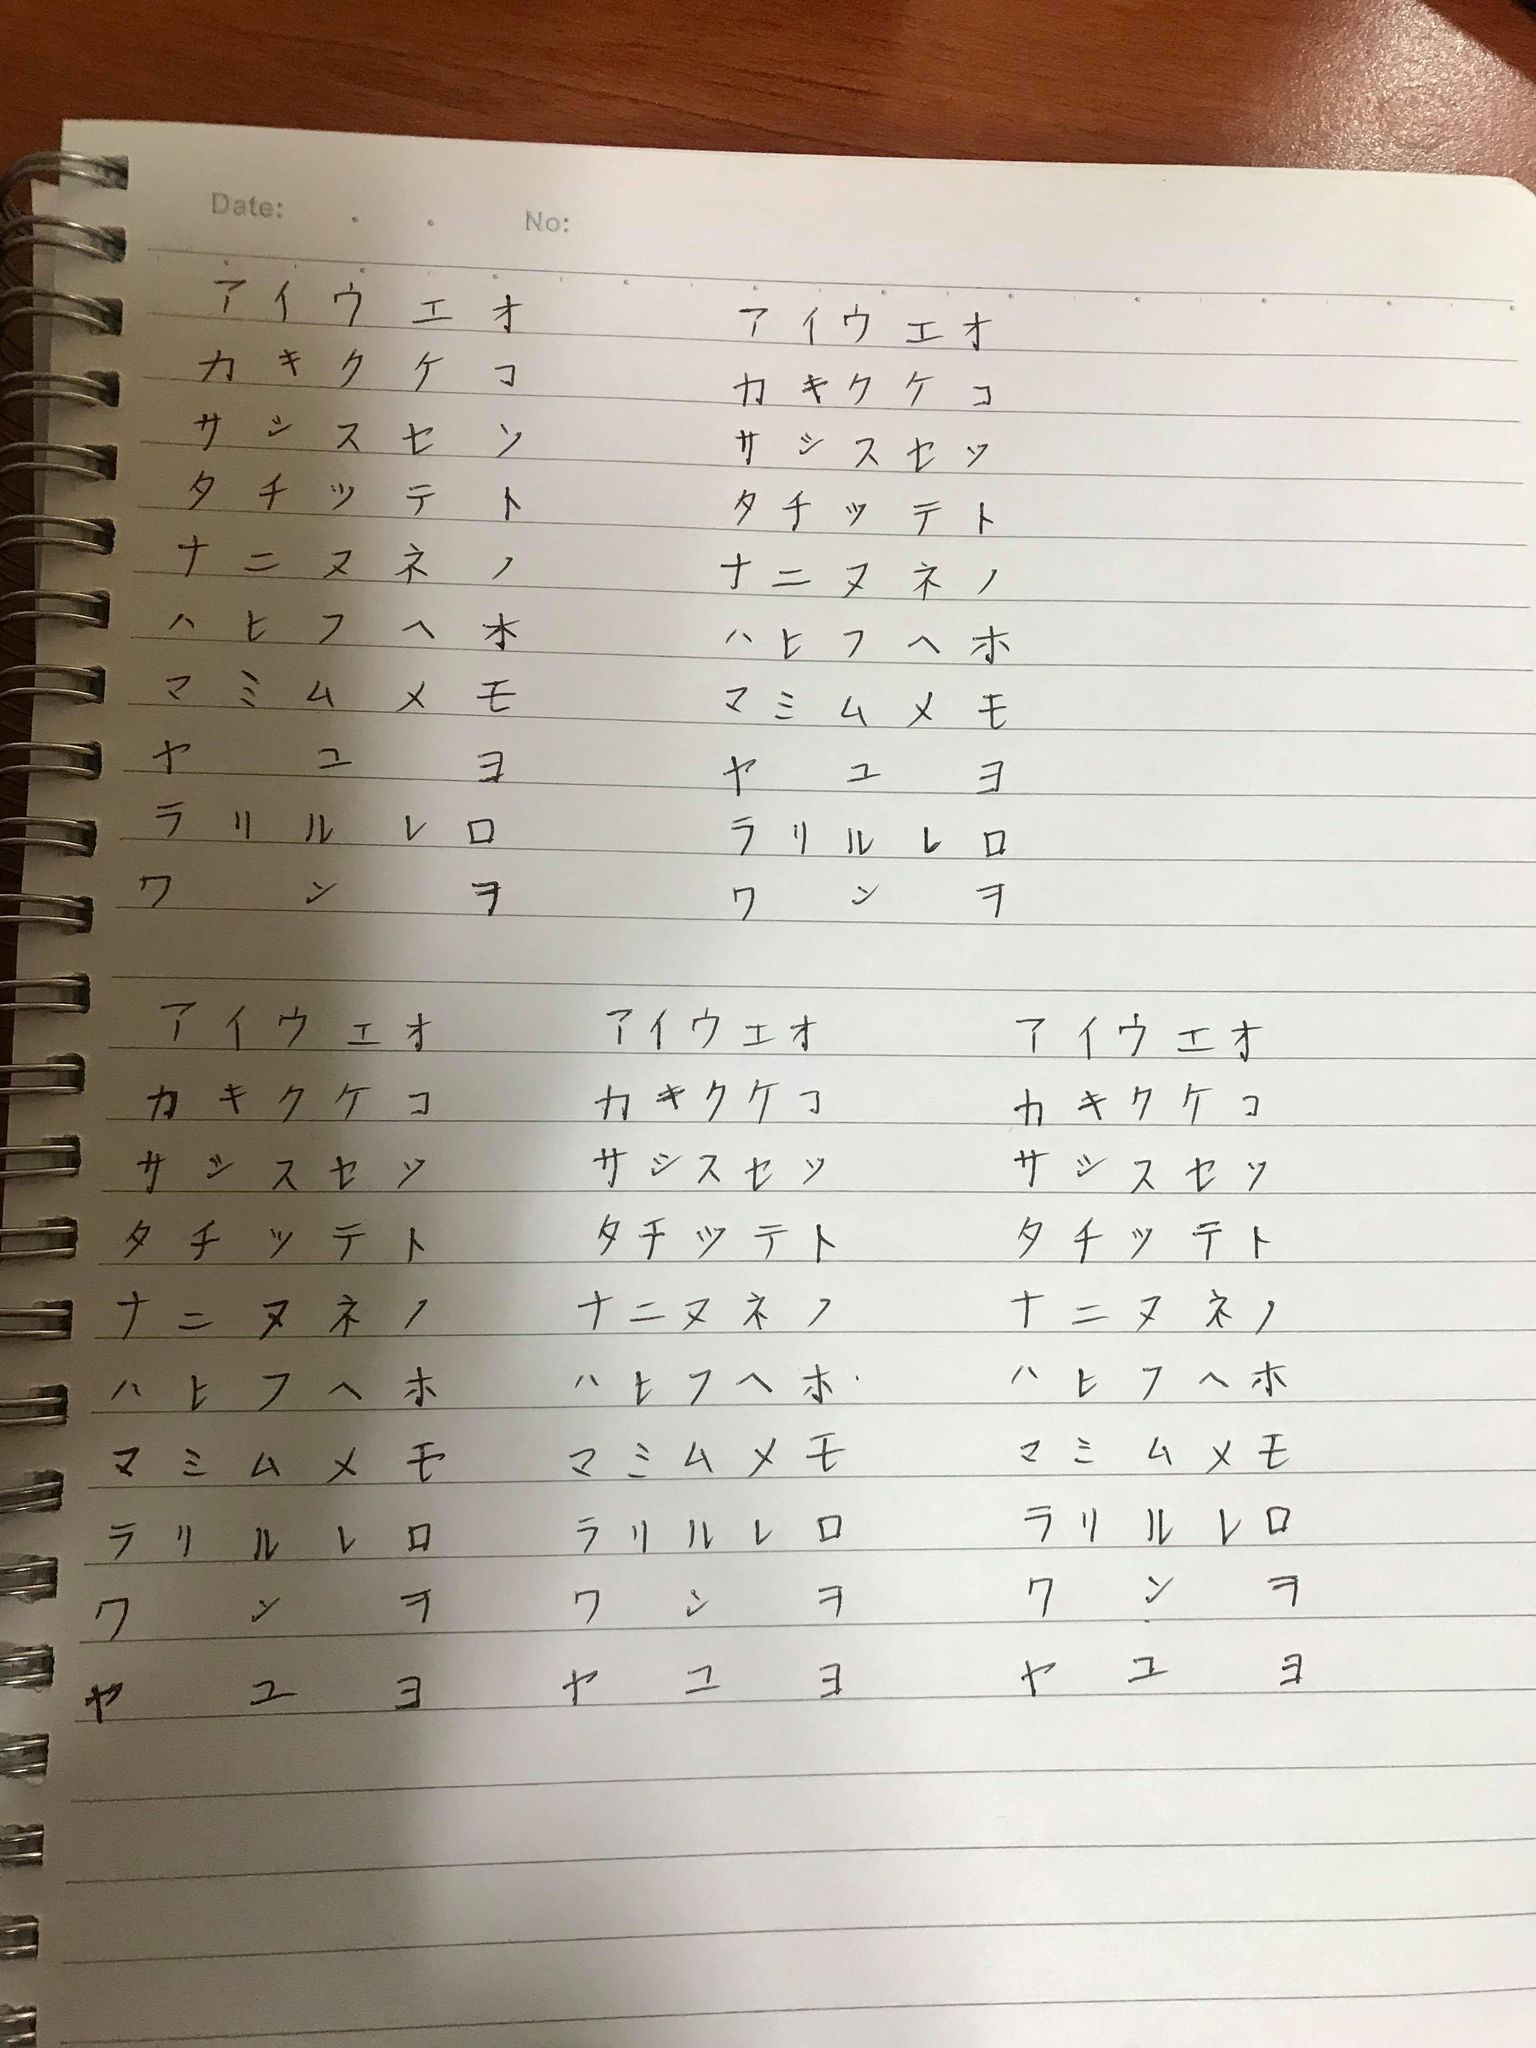 Date: . . No:
アイウエオ アイウエオ
カキクケコ カキクケコ
サシスセソ サシスセソ
タチツテト タチツテト
ナニヌネノ ナニヌネノ
ハヒフヘホ ハヒフヘホ
マミムメモ マミムメモ
ヤユヨ ヤユヨ
ラリルレロ ラリルレロ
ワンヲ ワンヲ
アイウエオ アイウエオ アイウエオ
カキクケコ カキクケコ カキクケコ
サシスセソ サシスセソ サシスセソ
タチツテト タチツテト タチツテト
ナニヌネノ ナニヌネノ ナニヌネノ
ハヒフヘホ ハヒフヘホ ハヒフヘホ
マミムメモ マミムメモ マミムメモ
ラリルレロ ラリルレロ ラリルレロ
ワンヲ ワンヲ ワンヲ
ヤユヨ ヤユヨ ヤユヨ